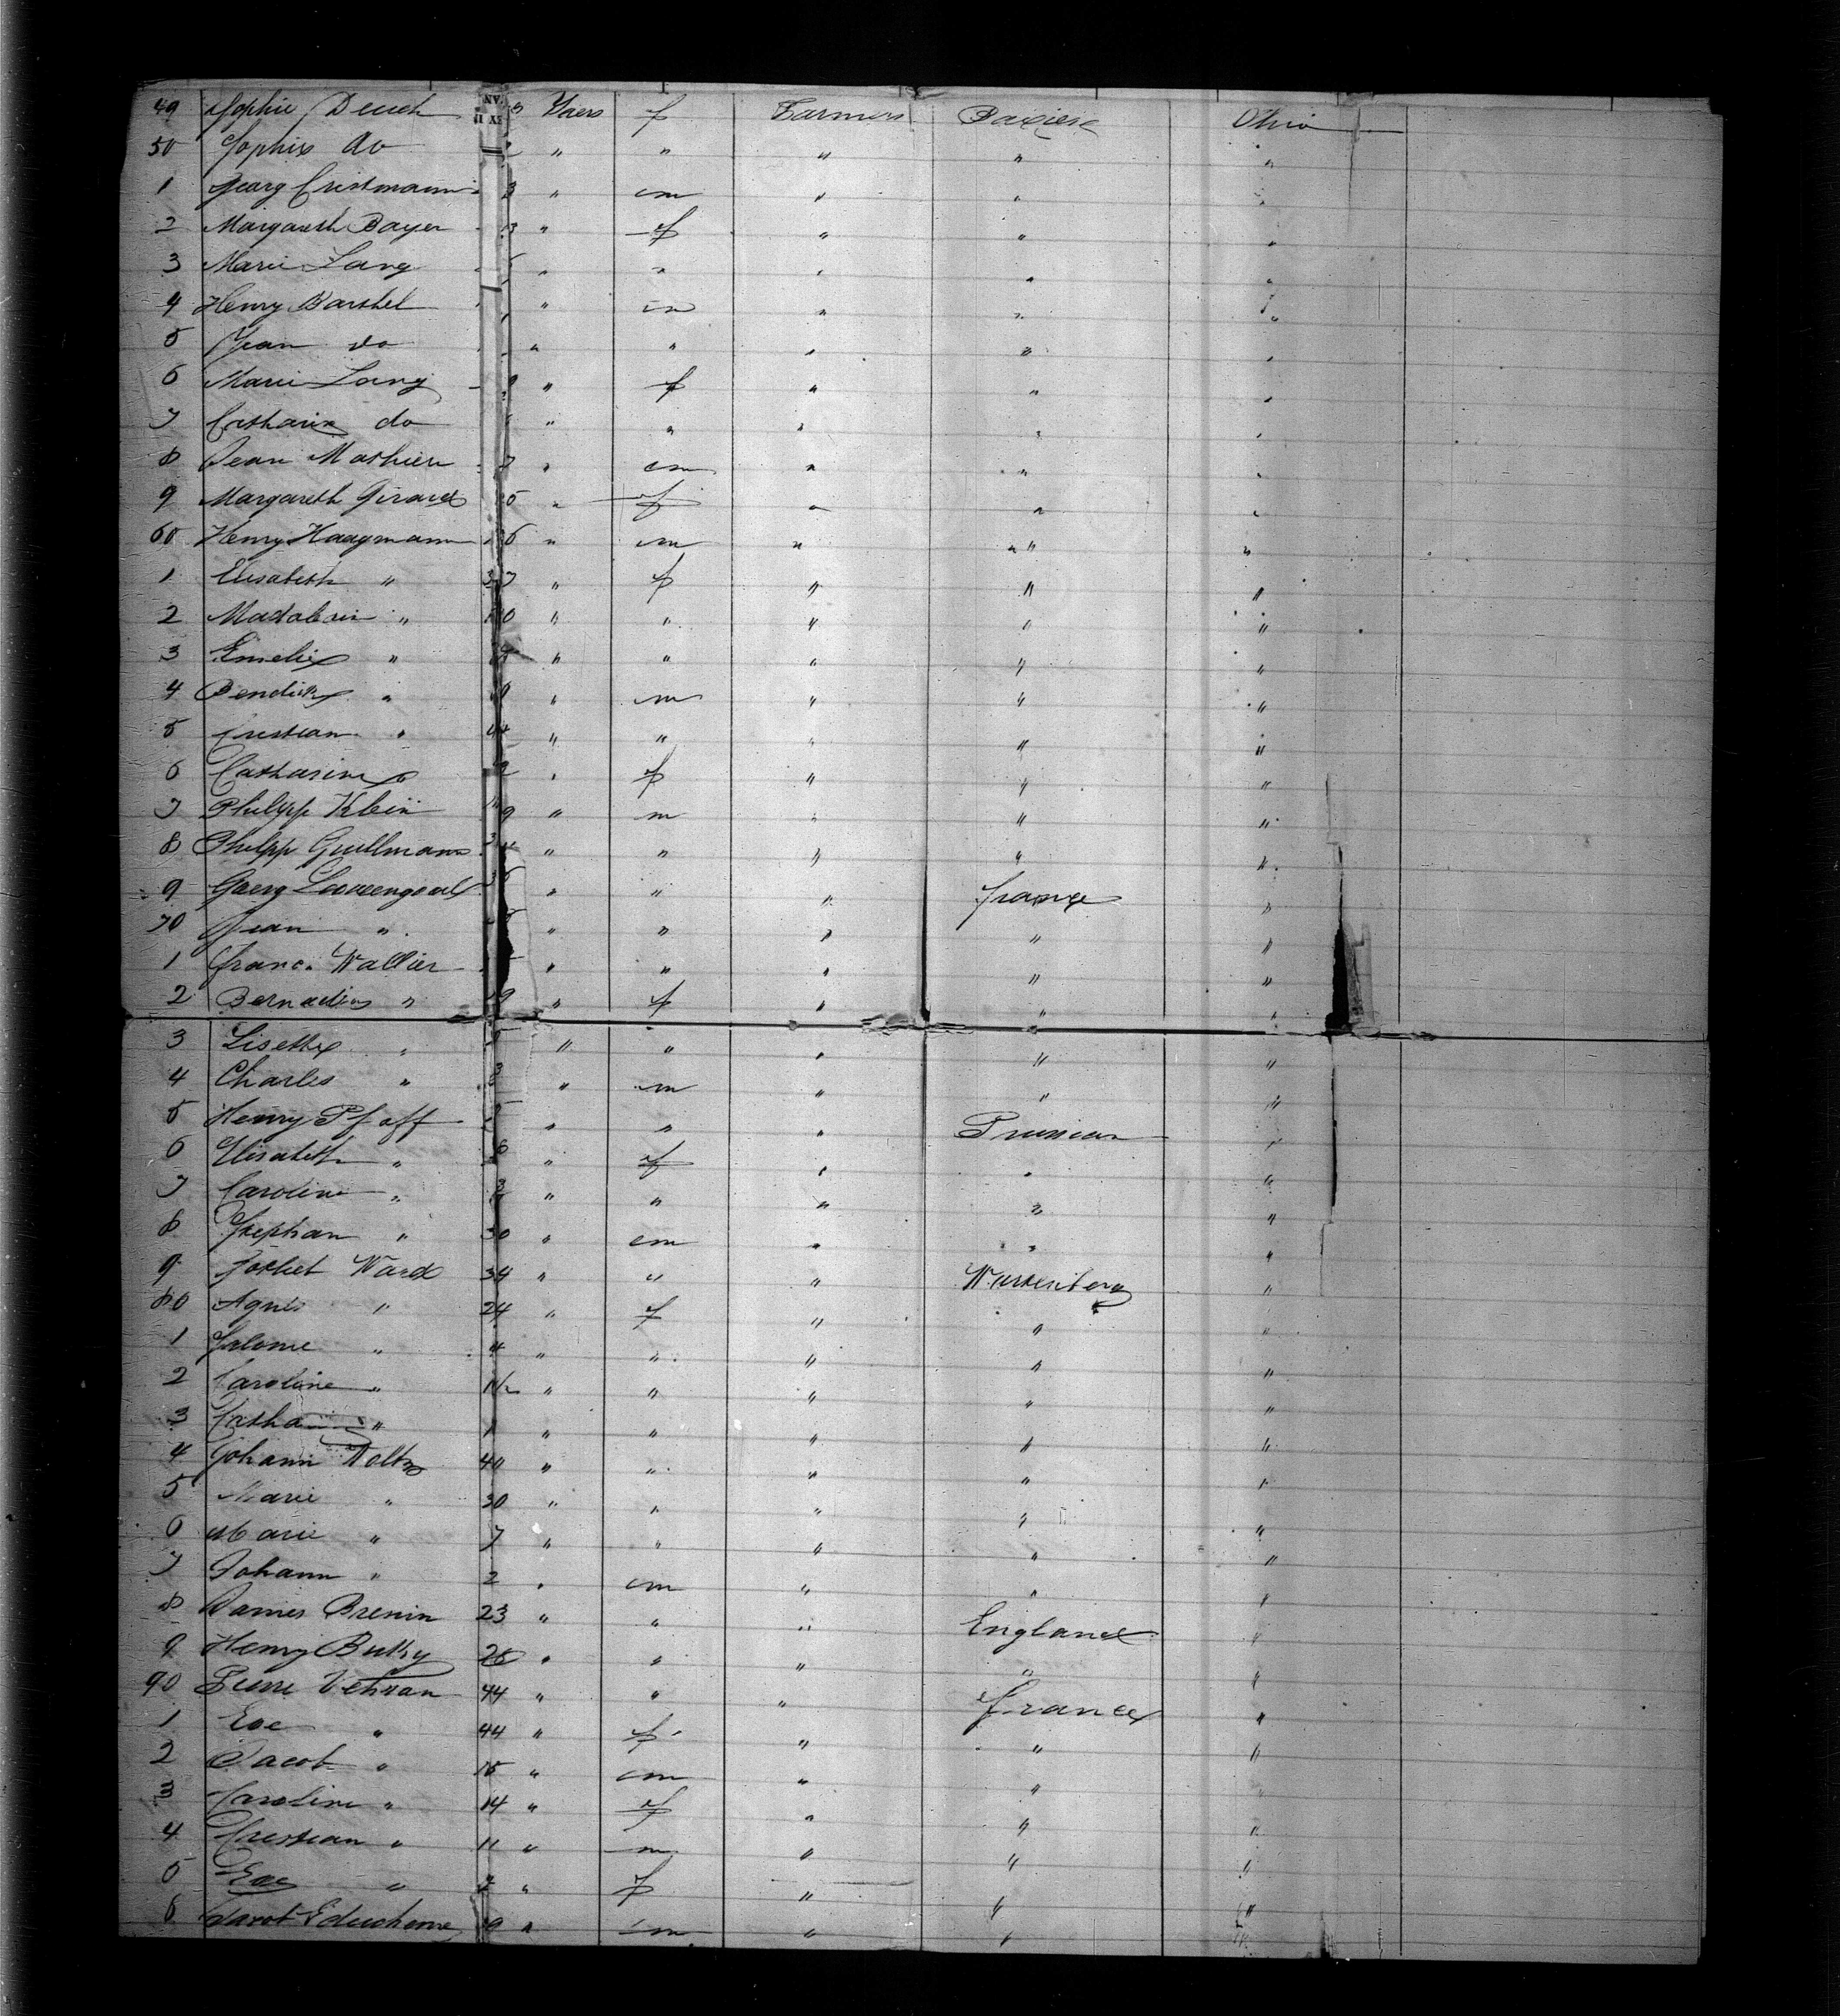 49 Sophie Deuch Yaers f Farmers Baviere Ohio
50 Sophie do " " " " "
1 Georg Cristmann 3 " m " " "
2 Margareth Bayer 13 " f " " "
3 Marie Lang " " " " "
4 Henry Barthel " m " " "
5 Jean do " " " " "
6 Marie Lang " f " " "
7 Catharin do " " " " "
8 Jean Mathieu 7 " m " " "
9 Margareth Girard 5 " f " " "
60 Henry Haagmann 6 " m " " "
1 Elisabeth " 37 " f " " "
2 Madalein " 10 " " " " "
3 Emelie " " " " " "
4 Bendick " " m " " "
5 Cristian " " " " " "
6 Catharine " f " " "
7 Philipp Klein 9 " m " " "
8 Philpp Gullmann " " " " "
9 Goerg " " " france "
70 Jean " " " " " "
1 franc. Wallier " " " " "
2 Bernadin " 29 " f " " "
3 Lisette " " " " " "
4 Charles " " m " " "
5 Henry Pfaff " " " Prussian "
6 Elisabeth " " f " " "
7 Caroline " " " " " "
8 Stephan " 30 " m " " "
9 Ward 34 " " " Wurtenberg "
80 Agnes " 24 " f " " "
1 Salome " 4 " " " " "
2 Caroline " 1 1/2 " " " " "
3 Catha " 1 " " " " "
4 Johann Woltz 40 " " " " "
5 Marie " 30 " " " " "
6 Marie " 7 " " " " "
7 Johann " 2 " m " " "
8 James Brenin 23 " " " England "
9 Henry Butty 26 " " " " "
90 Pierre Vehran 44 " " " france "
1 Eve " 44 " f " " "
2 Jacob " 15 " m " " "
3 Caroline " 14 " f " " "
4 Cristian " 11 " m " " "
5 Eve " 7 " f " " "
6 " m " " "